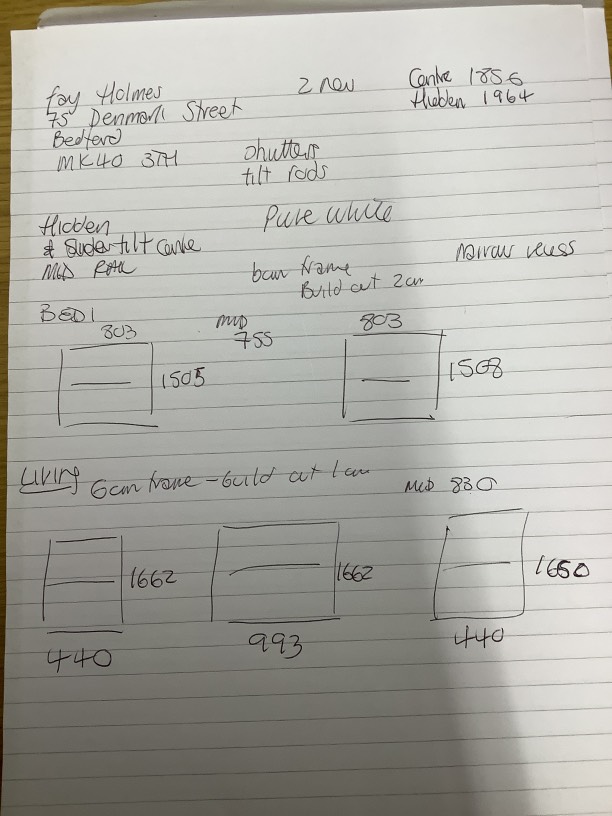 Fay Holmes
2 new
Centre 1856
Hidden 1964
75 Denmark Street
Bedford
MK40 3TH
shutters
tilt rods
Hidden
& Slider tilt Centre
Mid RAIL
Pure white
Narrow recess
6cm frame
Build out 2cm
BED 1
803
MID
755
803
1505
1508
Living
6cm frame - build out 1cm
MID 830
1662
1662
1650
440
993
440